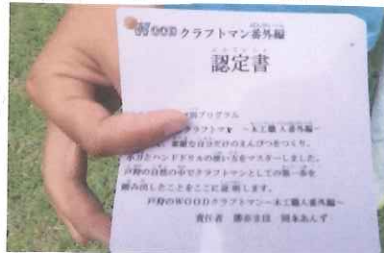 WOODクラフトマン番外編
認定書
プログラム
クラフトマン ~木工職人番外編~
素敵な自分だけのえんぴつをつくり、
小刀とハンドドリルの使い方をマスターしました。
戸狩の自然の中でクラフトマンとしての第一歩を
踏み出したことをここに証明します。
戸狩のWOODクラフトマン~木工職人番外編~
責任者